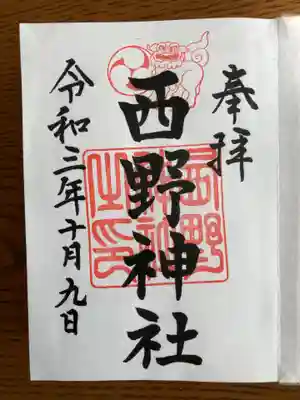 奉拝
西野神社
西野神社之印
令和三年十月九日